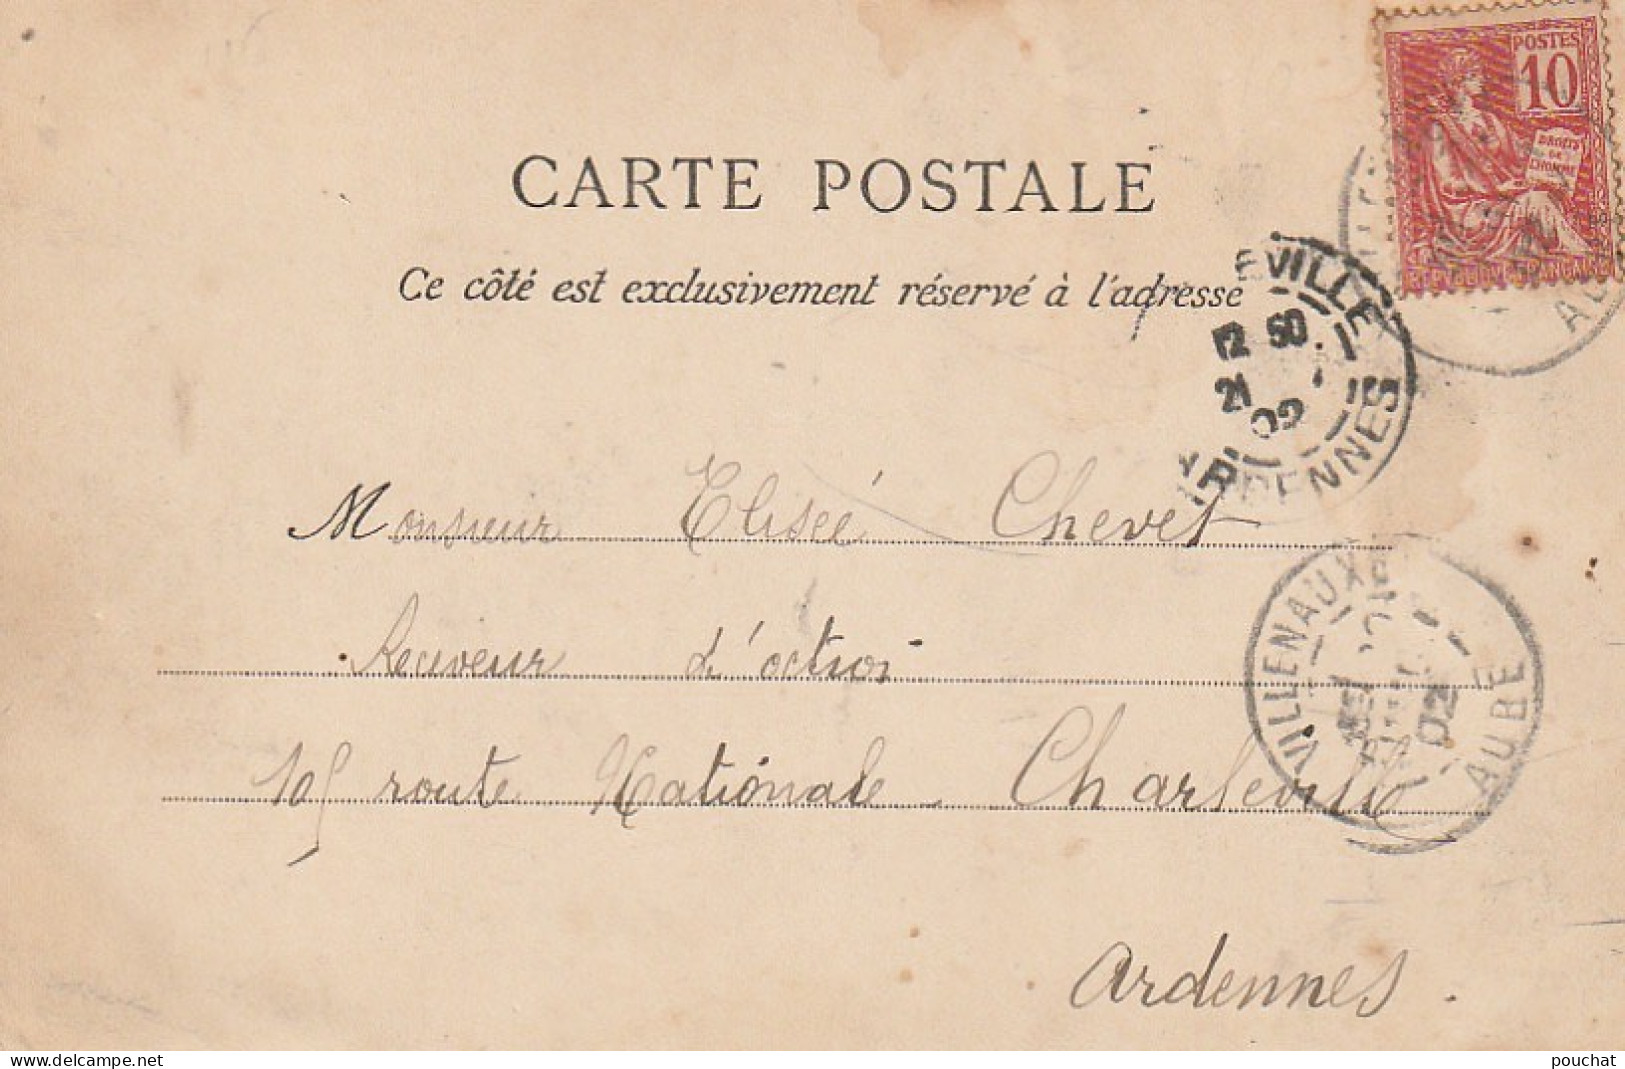 POSTES
10
DROITS
DE
L'HOMME
REPUBLIQUE FRANÇAISE
CARTE POSTALE
Ce côté est exclusivement réservé à l'adresse
EVILLE
12 50
21
02
ARDENNES
Monsieur Elisée Chevet
Receveur d'octroi
105 route Nationale Charleville
Ardennes.
VILLENAUXE
02
AUBE
www.delcampe.net
pouchat